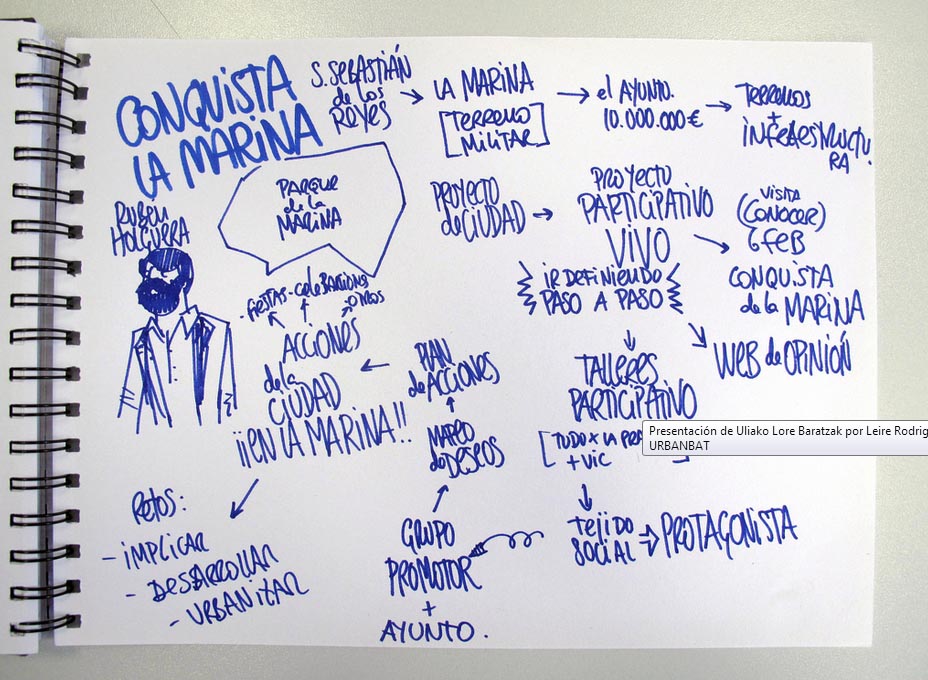 CONQUISTA
LA MARINA
S. SEBASTIÁN
de los
REYES
LA MARINA
[TERRENO
MILITAR]
el AYUNTO.
10.000.000€
TERRENOS
+
INFRAESTRUCTU.
RA
RUBÉN
HOLGUERA
PARQUE
de la
MARINA
PROYECTO
de CIUDAD
PROYECTO
PARTICIPATIVO
VIVO
IR DEFINIENDO
PASO A PASO
VISITA
(CONOCER)
6 FEB
CONQUISTA
de la MARINA
WEB de OPINIÓN
TALLERES
PARTICIPATIVO
[TODO X LA
+ VIC
TEJIDO
SOCIAL
PROTAGONISTA
GRUPO
PROMOTOR
+
AYUNTO.
MAPEO
de DESEOS
PLAN
de ACCIONES
ACCIONES
- FIESTAS - CELEBRACIONES
- OTROS
de la
CIUDAD
¡¡EN LA MARINA!!
RETOS:
- IMPLICAR
- DESARROLLAR
- URBANIZAR
Presentación de Uliako Lore Baratzak por Leire Rodrig
URBANBAT